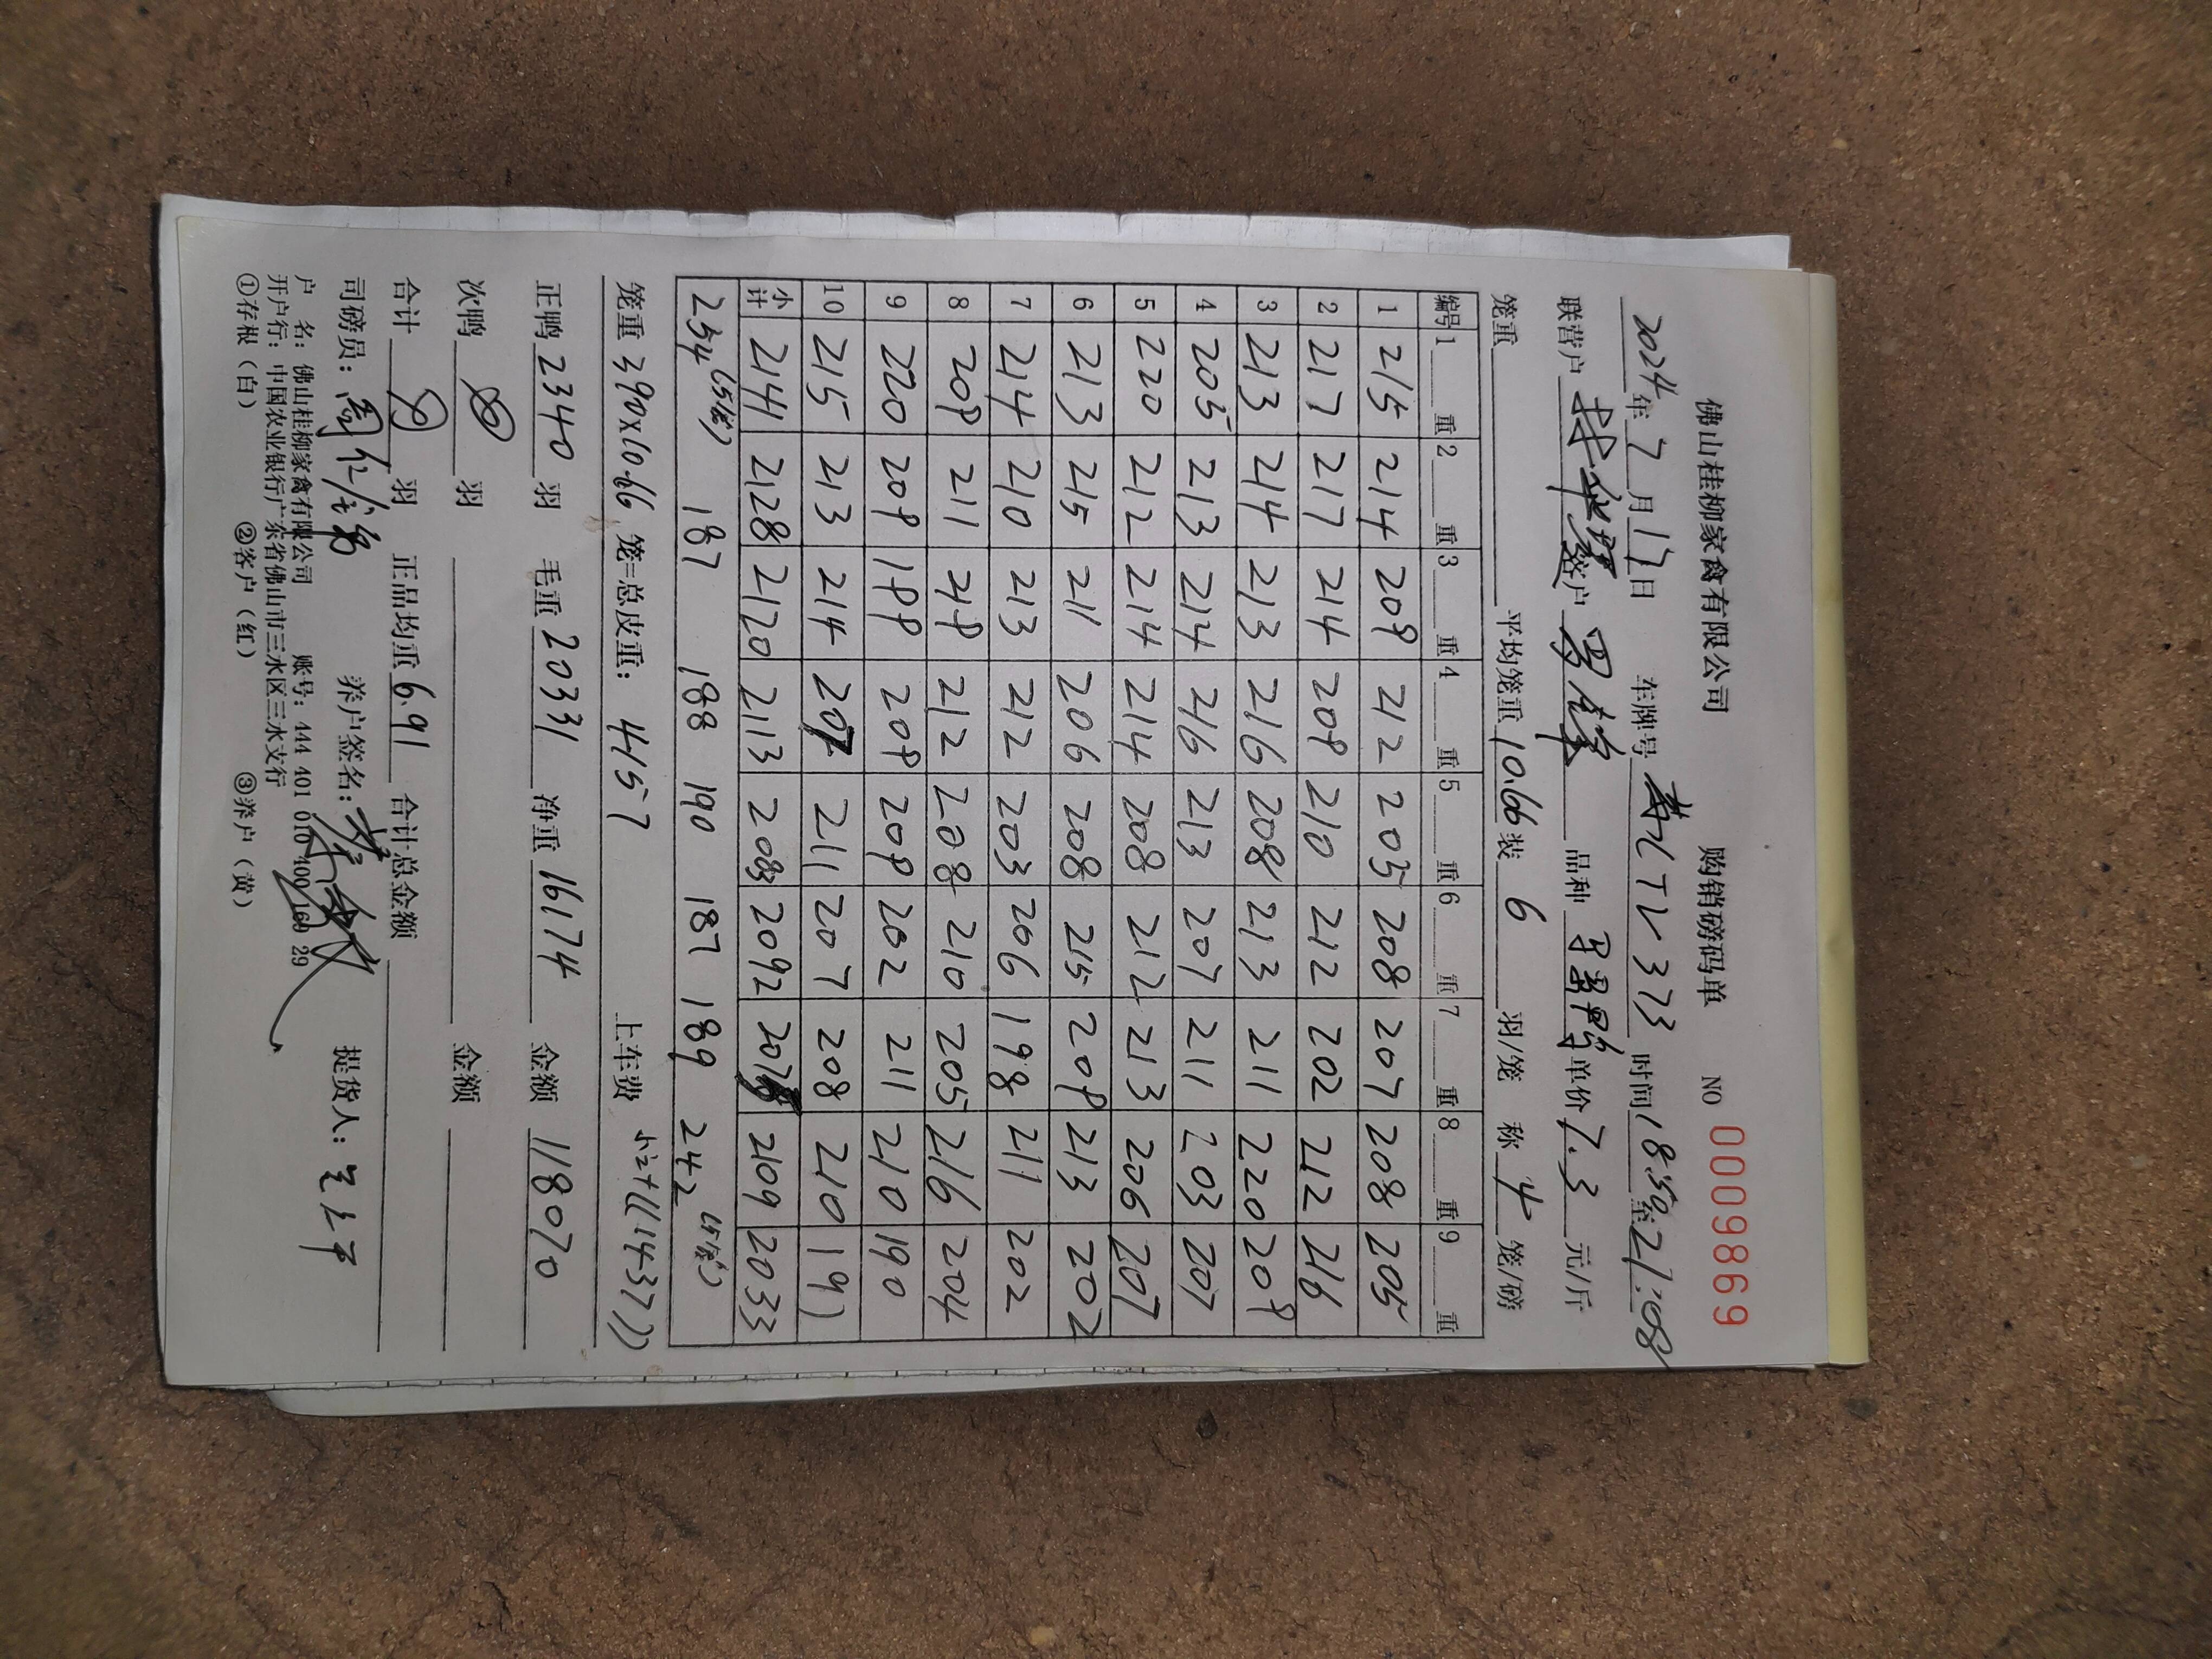 佛山桂柳家禽有限公司 购销磅码单 NO 00098669
2024年7月17日 车牌号 TV373 时间18:50至21:08
联营户 客户 罗 品种 单价7.3元/斤
笼重 平均笼重10.66装6羽/笼 称4笼/磅
编号 1 重 2 重 3 重 4 重 5 重 6 重 7 重 8 重 9 重
1 215 214 209 212 205 208 207 208 205
2 217 217 214 208 210 212 202 212 216
3 213 214 213 216 208 213 211 220 209
4 205 213 214 216 213 207 211 203 207
5 220 212 214 214 208 212 213 206 207
6 213 215 211 206 208 215 209 213 202
7 214 210 213 212 203 206 198 211 202
8 209 211 218 212 208 210 205 216 204
9 220 209 199 209 209 202 211 210 190
10 215 213 214 207 211 207 208 210 191
小计 2141 2128 2120 2113 2083 2092 2075 2109 2033
234(5笼) 187 188 190 187 189 242(5笼)
笼重 390x10.66 笼=总皮重: 4157 上车费 (11437)
正鸭2340羽 毛重20331 净重16174 金额118070
次鸭 羽 金额
合计 羽 正品均重6.91 合计总金额
司磅员: 养户签名: 提货人:
户 名: 佛山桂柳家禽有限公司 账号: 444 401 010 400 160 29
开户行: 中国农业银行广东省佛山市三水区三水支行
①存根(白) ②客户(红) ③养户(黄)